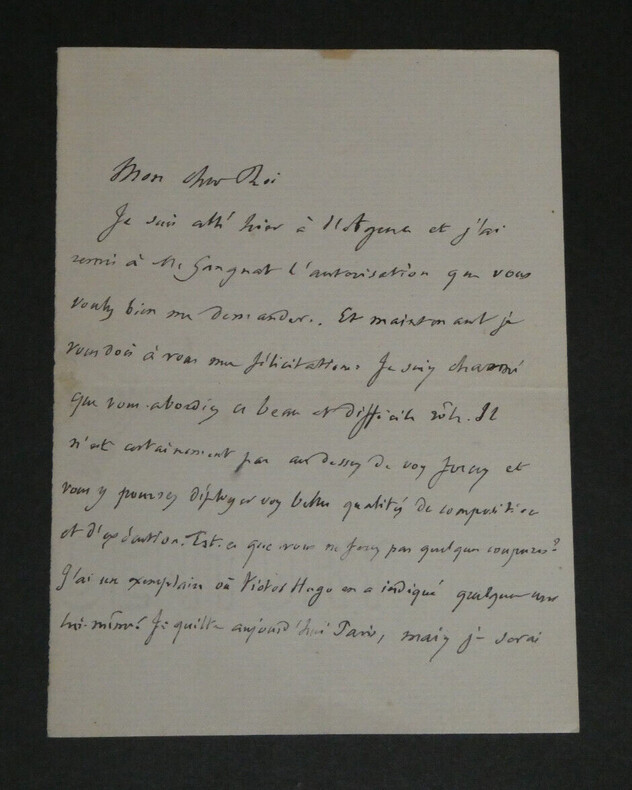 Mon cher Roi
Je suis allé hier à l'Agence et j'ai
remis à Mr Gangnat l'autorisation que vous
voulez bien me demander. Et maintenant je
vous dois à vous mes félicitations. Je suis charmé
que vous abordiez ce beau et difficile rôle. Il
n'est certainement pas au dessus de vos forces et
vous y pourrez déployer vos belles qualités de composition
et d'exécution. Est-ce que vous ne ferez pas quelques coupures?
J'ai un exemplaire où Victor Hugo en a indiqué quelques unes
lui-même. Je quitte aujourd'hui Paris, mais je serai